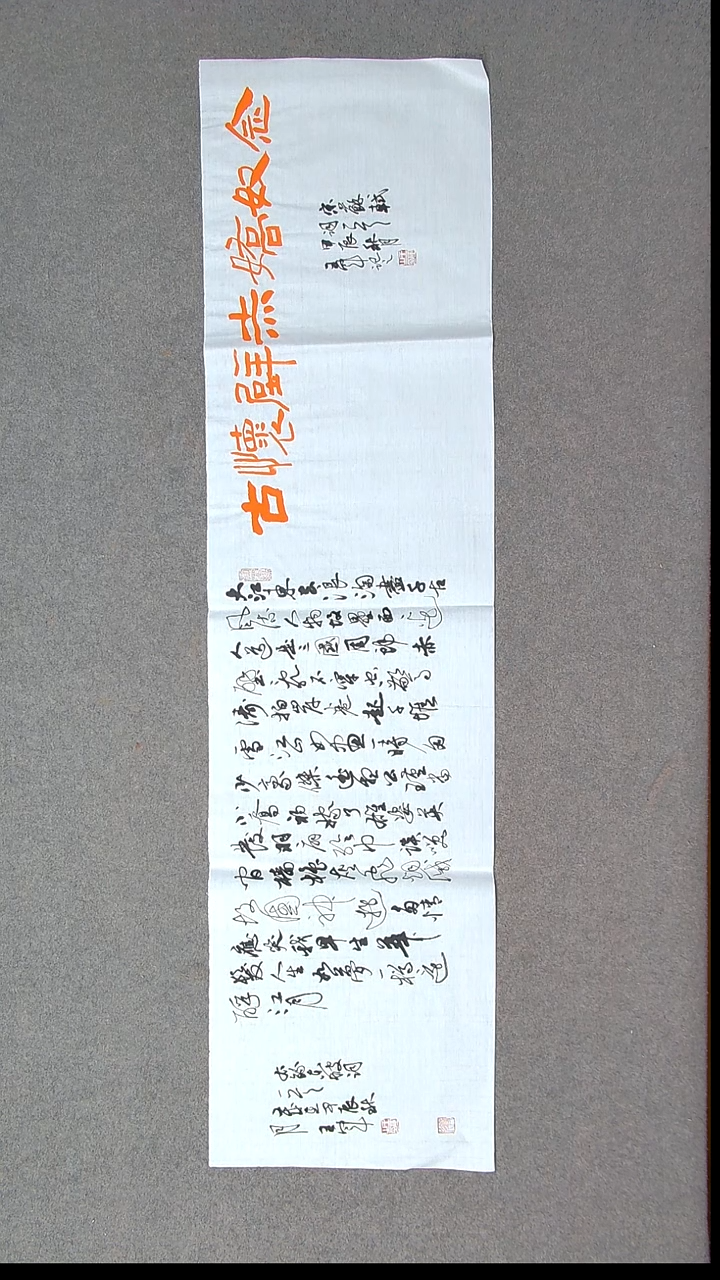 念奴嬌赤壁懷古
宋蘇軾
甲辰秋月
大江東去浪淘盡千古
風流人物故壘西邊
人道是三國周郎赤
壁亂石穿空驚
濤拍岸卷起千堆
雪江山如畫一時多
少豪傑遙想公瑾當
小喬初嫁了雄姿英
發羽扇綸巾談笑
間檣櫓灰飛煙滅
故國神遊多情
應笑我早生華
髮人生如夢一樽還
酹江月
東坡詞
歲在甲辰秋
月 王冠